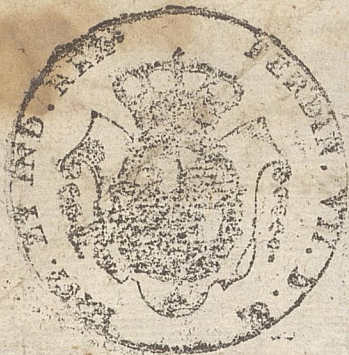 FERDIN. VII. D. G.
ET IND. REX